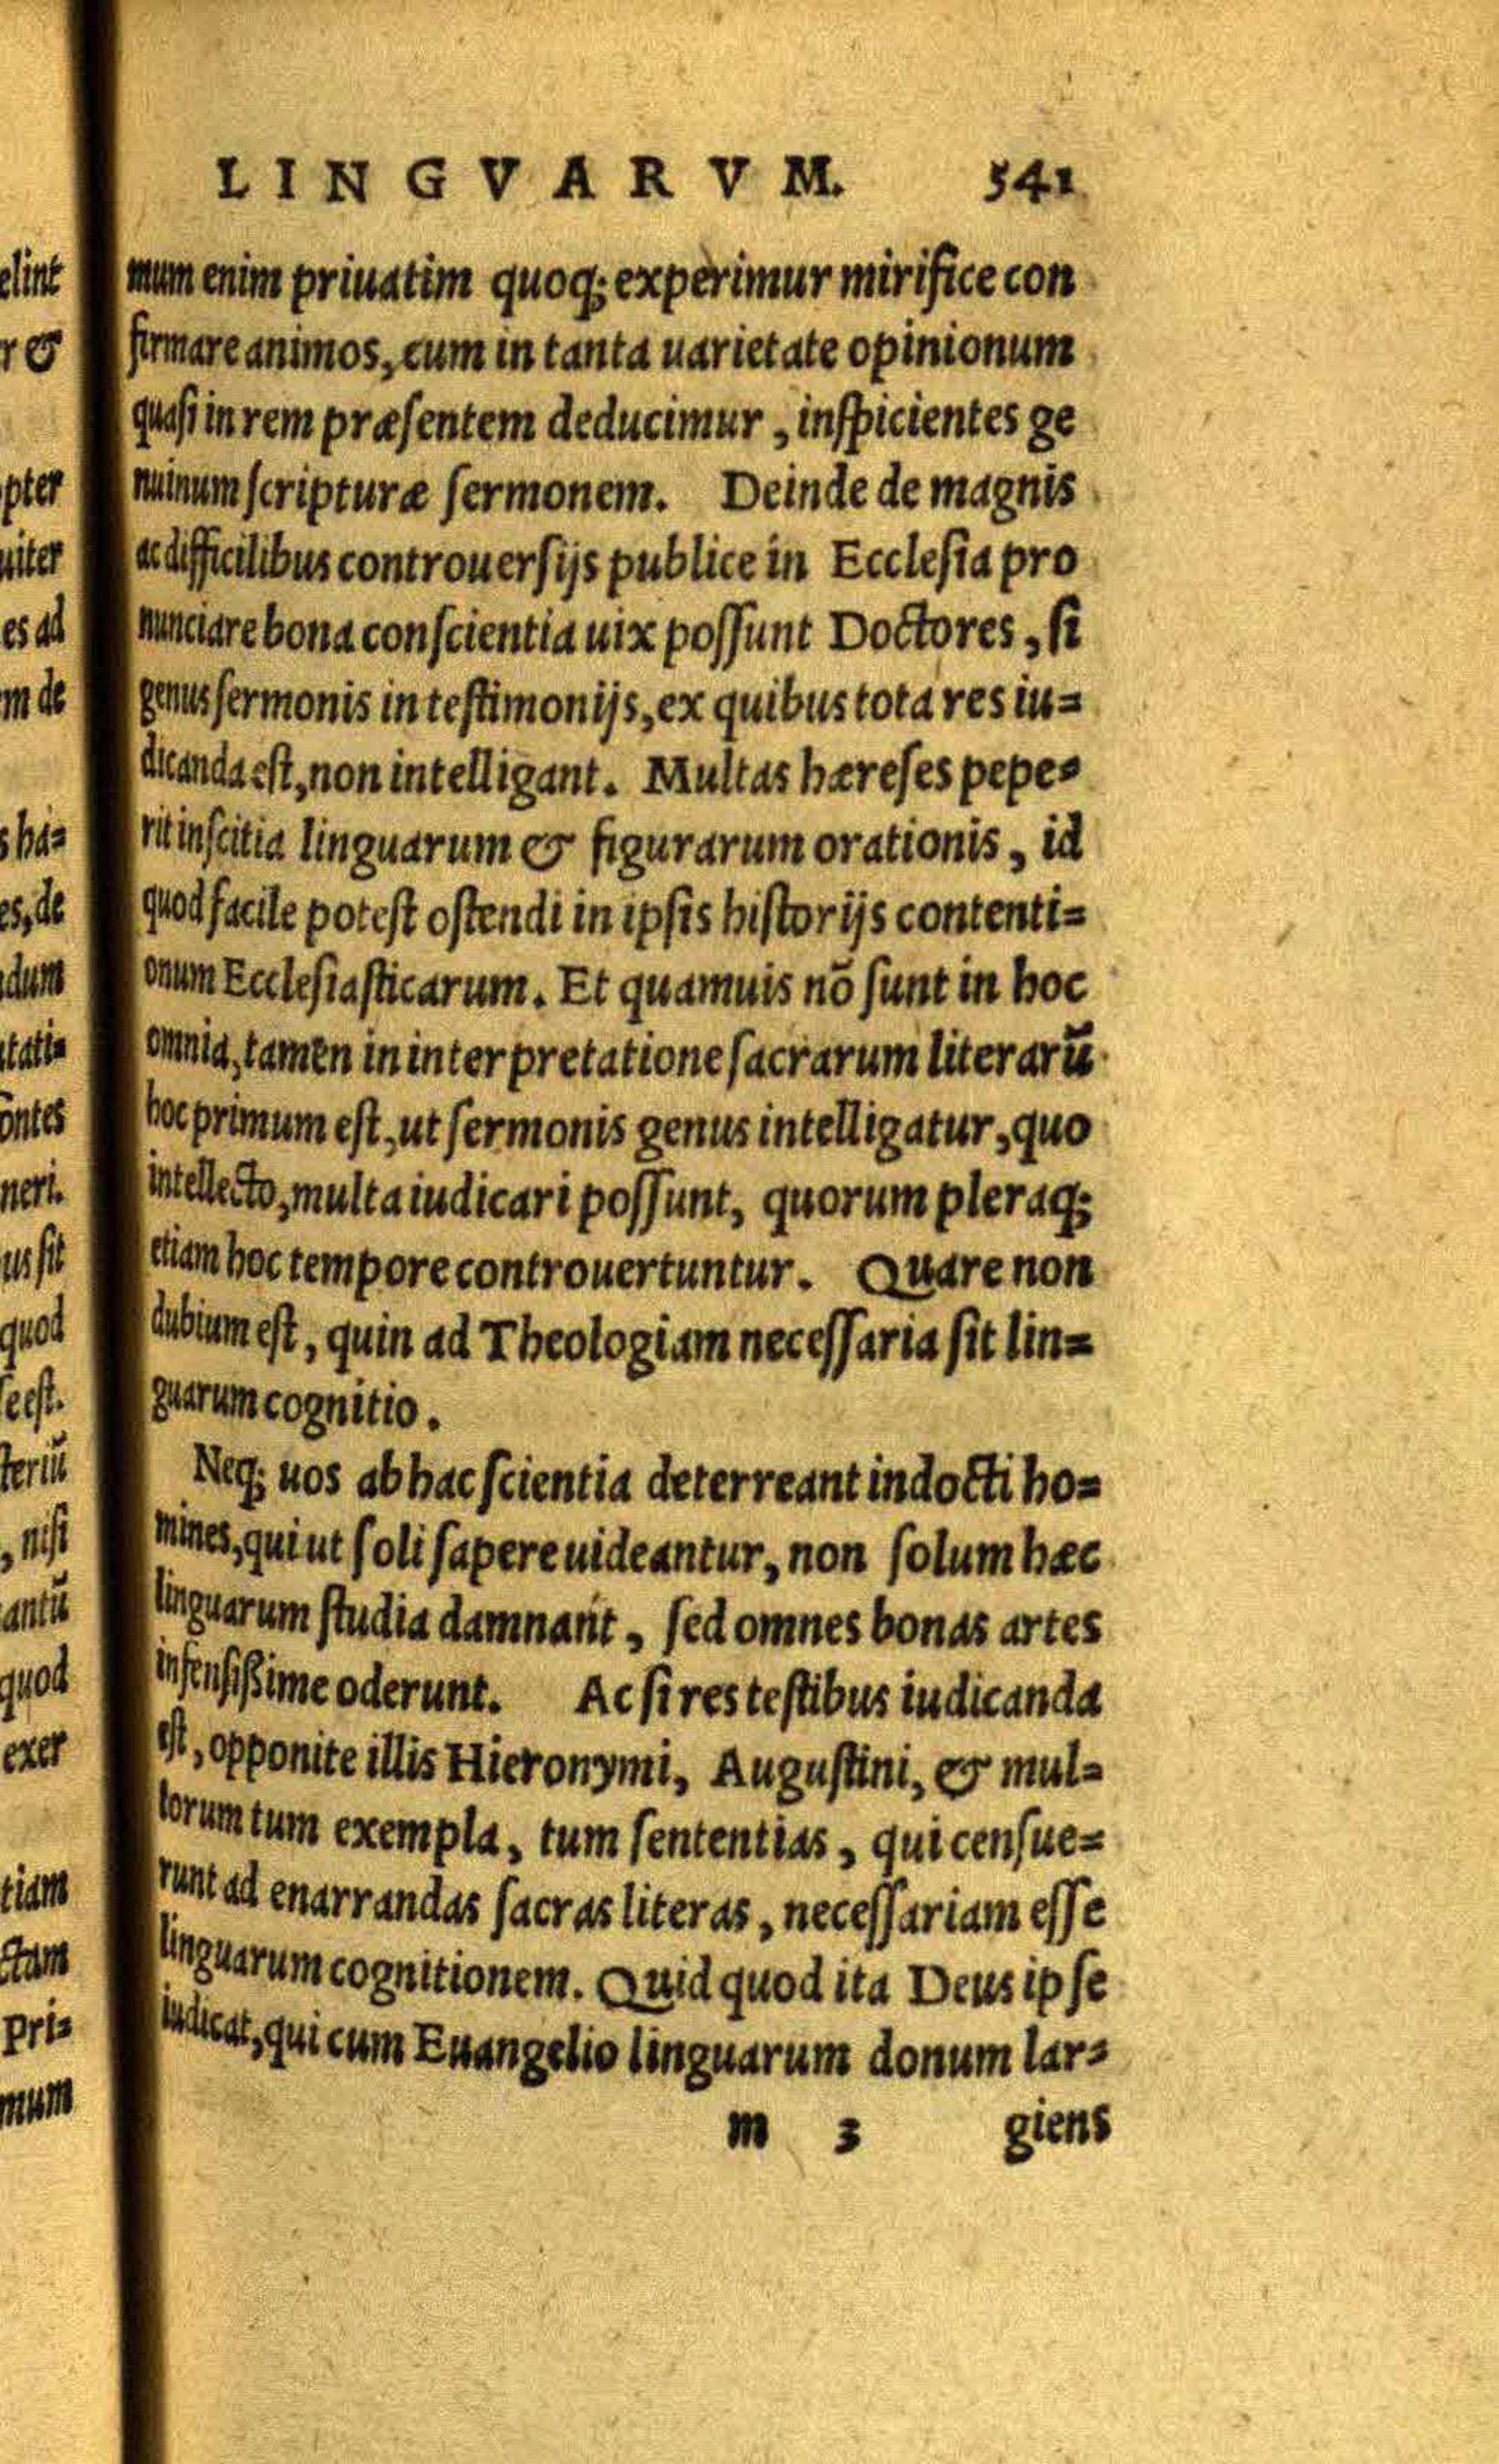 LINGVARVM. 541
mum enim priuatim quoq; experimur mirifice con
firmare animos, cum in tanta uarietate opinionum
quasi in rem præsentem deducimur, inspicientes ge
nuinum scripturæ sermonem. Deinde de magnis
ac difficilibus controuersijs publice in Ecclesia pro
nunciare bona conscientia uix possunt Doctores, si
genus sermonis in testimonijs, ex quibus tota res iu=
dicanda est, non intelligant. Multas hæreses pepe=
rit inscitia linguarum & figurarum orationis, id
quod facile potest ostendi in ipsis historijs contenti=
onum Ecclesiasticarum. Et quamuis nō sunt in hoc
omnia, tamen in interpretatione sacrarum literarū
hoc primum est, ut sermonis genus intelligatur, quo
intellecto, multa iudicari possunt, quorum pleraq;
etiam hoc tempore controuertuntur. Quare non
dubium est, quin ad Theologiam necessaria sit lin=
guarum cognitio.
Neq; uos ab hac scientia deterreant indocti ho=
mines, qui ut soli sapere uideantur, non solum hæc
linguarum studia damnant, sed omnes bonas artes
infensißime oderunt. Ac si res testibus iudicanda
est, opponite illis Hieronymi, Augustini, & mul=
torum tum exempla, tum sententias, qui censue=
runt ad enarrandas sacras literas, necessariam esse
linguarum cognitionem. Quid quod ita Deus ipse
iudicat, qui cum Euangelio linguarum donum lar=
m 3 giens